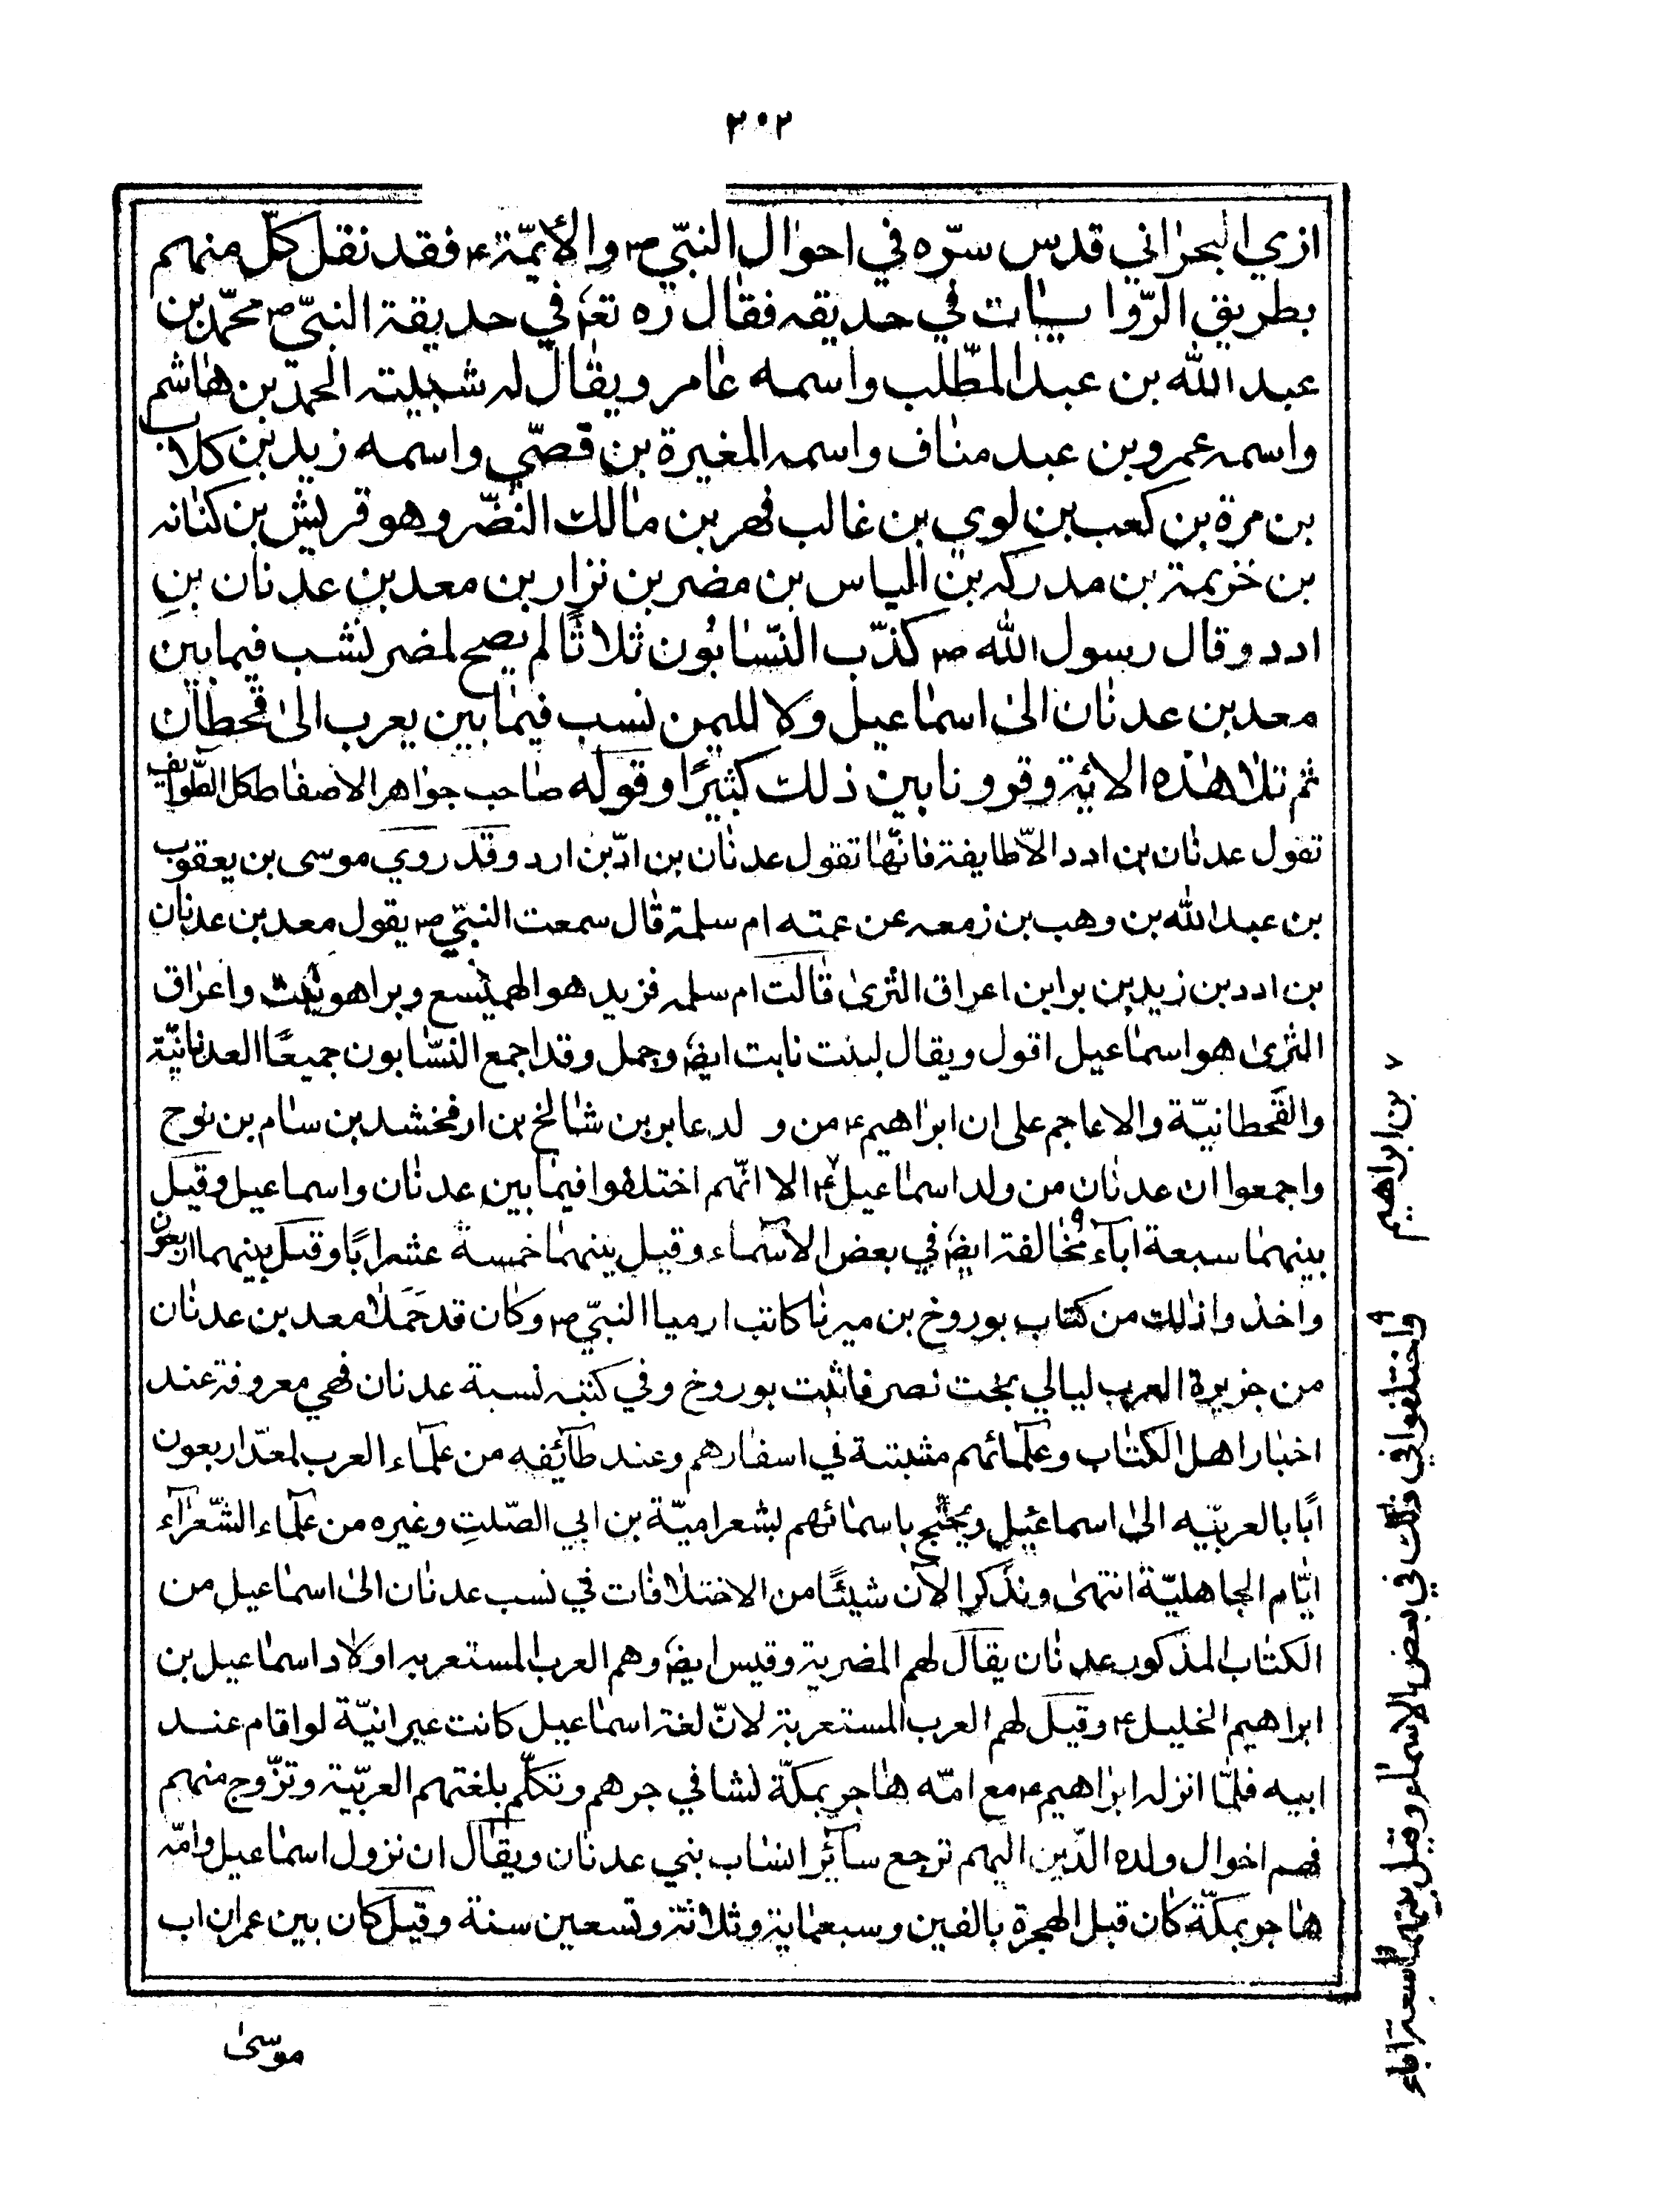 ٣٠٢
ازي البحراني قدس سرّه في احوال النبيّ ص والأيمّة ع فقد نقل كلّ منهم
بطريق الرّوايات في حديقه فقال ره تعا في حديقة النبيّ ص محمّد بن
عبد الله بن عبد المطّلب واسمه عامر ويقال له شيبة الحمد بن هاشم
واسمه عمرو بن عبد مناف واسمه المغيرة بن قصّي واسمه زيد بن كلاب
بن مرة بن كعب بن لوي بن غالب فهر بن مالك النضّر وهو قريش بن كنانه
بن خزيمة بن مدركه بن الياس بن مضر بن نزار بن معد بن عدنان بن
ادد وقال رسول الله ص كذّب النسّابون ثلاثًا لم يصح لمضر نسب فيما بين
معد بن عدنان الى اسماعيل ولا لليمن نسب فيما بين يعرب الى قحطان
ثم تلا هذه الائية وقرونا بين ذلك كثيرًا وقوله صاحب جواهر الاصفاط كل الطّوايف
تقول عدنان بن ادد الاّ طايفة فانّها تقول عدنان بن ادّ بن ادد وقد روي موسى بن يعقوب
بن عبد الله بن وهب بن زمعه عن عمته ام سلمة قال سمعت النبيّ ص يقول معد بن عدنان
بن ادد بن زيد بن برا بن اعراق الثرى قالت ام سلمه فزيد هو الهميسع وبرا هو نبت واعراق
الثرى هو اسماعيل اقول ويقال لبنت نابت ايضا وحمل وقد اجمع النسّابون جميعًا العدنانيّة
والقحطانيّة والاعاجم على ان ابراهيم ع من ولد عابر بن شالخ بن ارفخشد بن سام بن نوح
واجمعوا ان عدنان من ولد اسماعيل ع الا انّهم اختلفوا فيما بين عدنان واسماعيل وقيل
بينهما سبعة اباء مخالفة ايضا في بعض الاسماء وقيل بينهما خمسة عشر ابًا وقيل بينهما اربعون
واخذوا ذلك من كتاب بوروخ بن ميرنا كاتب ارميا النبيّ ص وكان قد حمل معد بن عدنان
من جزيرة العرب ليالي بخت نصر فاثبت بوروخ وفي كتبه نسبة عدنان فهي معروفة عند
اخبار اهل الكتاب وعلمائهم مثبتة في اسفارهم وعند طآئفه من علمآء العرب لمعدّ اربعون
ابًا بالعربيّه الى اسماعيل ويحتج باسمائهم بشعر اميّة بن ابي الصّلت وغيره من علمآء الشّعرآء
ايّام الجاهليّة انتهى ونذكر الآن شيئًا من الاختلافات في نسب عدنان الى اسماعيل من
الكتاب المذكور عدنان يقال لهم المضرية وقيس ايضا وهم العرب المستعربه اولاد اسماعيل بن
ابراهيم الخليل ع وقيل لهم العرب المستعربة لانّ لغة اسماعيل كانت عبرانيّة لو اقام عند
ابيه فلمّا انزله ابراهيم ع مع امّه هاجر بمكّة نشا في جرهم وتكلّم بلغتهم العربيّة وتزّوج منهم
فهم اخوال ولده الّذين اليهم ترجع سآئر انساب بني عدنان ويقال ان نزول اسماعيل وامّه
هاجر بمكّة كان قبل الهجرة بالفين وسبعماية وثلاثة وتسعين سنة وقيل كان بين عمران اب
موسى
٧ بن ابراهيم
٩ واختلفوا في ذلك في بعض الاسماء وقيل بينهما سبعة اباء